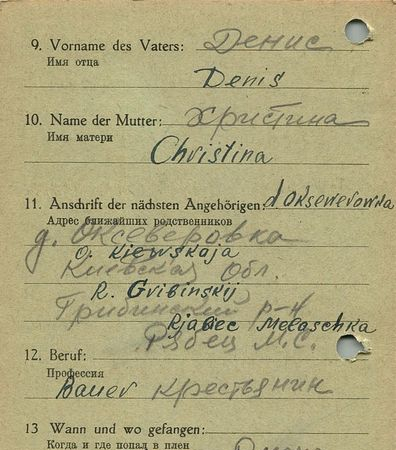 9. Vorname des Vaters: Денис
Имя отца
Denis
10. Name der Mutter: Христина
Имя матери
Christina
11. Anschrift der nächsten Angehörigen: d Oksewerowka
Адрес ближайших родственников
д. Оксеверовка
O. Kjewskaja
Киевская обл.
R. Gribinskij
Грибинский р-н
Rjabec Melaschka
Рябец М.С.
12. Beruf:
Профессия
Bauer крестьянин
13 Wann und wo gefangen:
Когда и где попал в плен